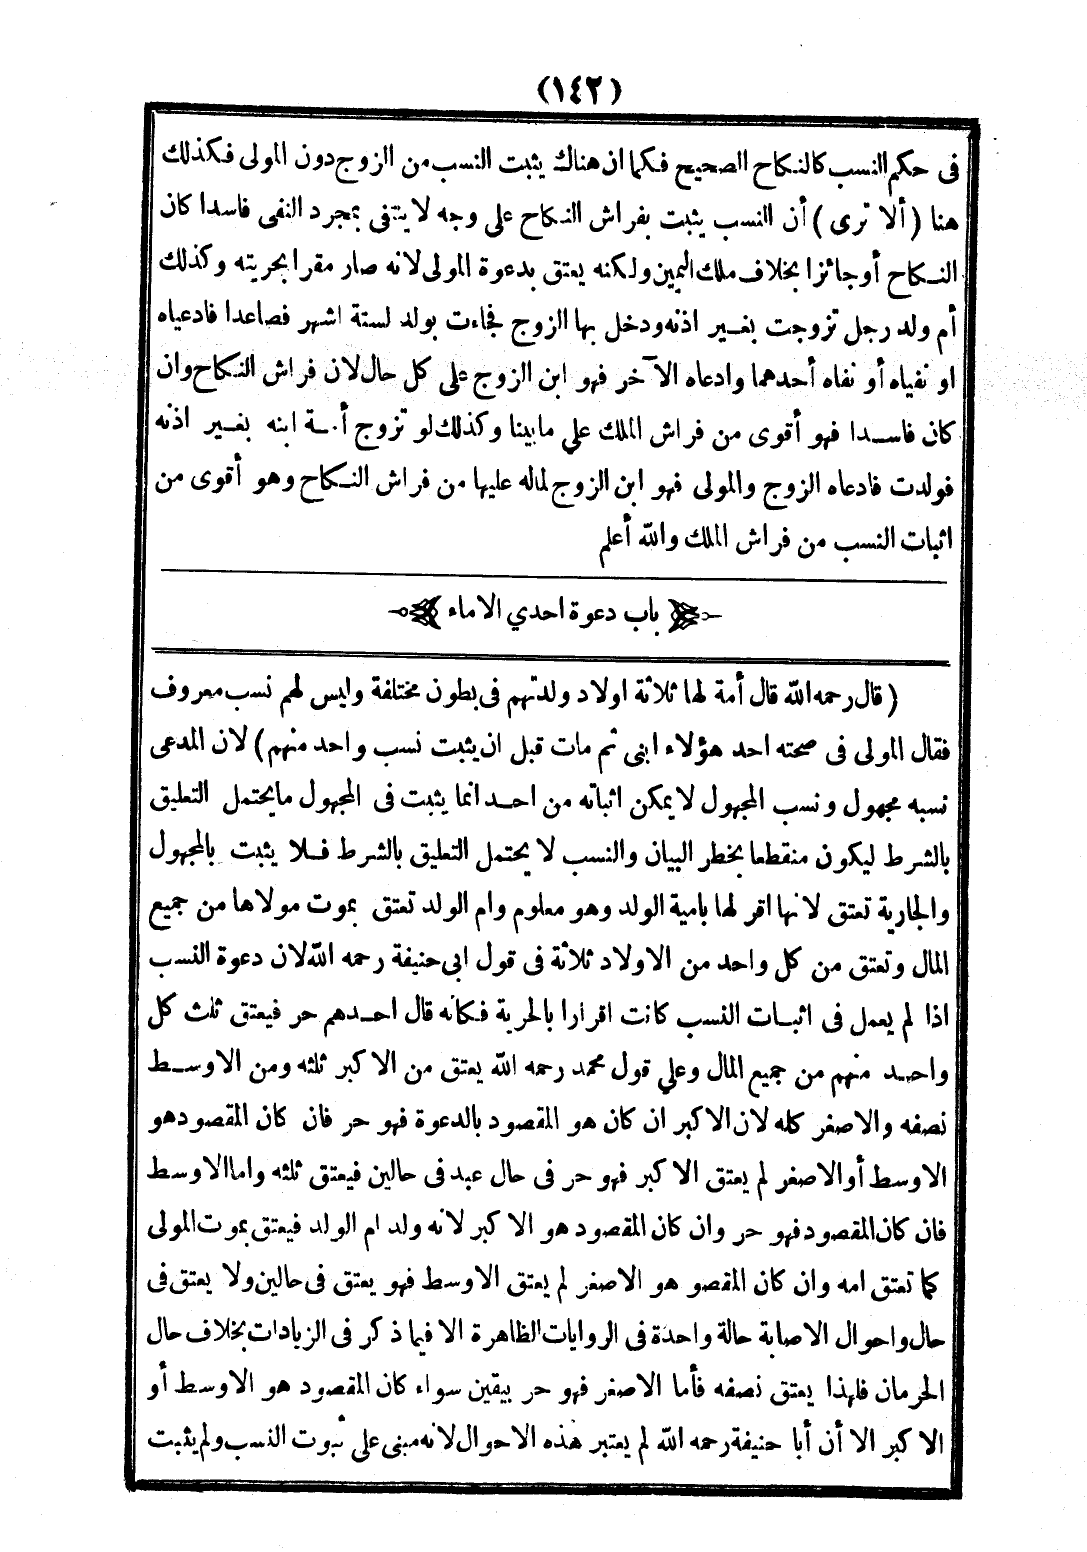 (١٤٢)
فى حكم النسب كالنكاح الصحيح فكما ان هناك يثبت النسب من الزوج دون المولى فكذلك
هنا ( ألا ترى ) أن النسب يثبت بفراش النكاح على وجه لا ينتفى بمجرد النفى فاسدا كان
النكاح أو جائزا بخلاف ملك اليمين ولكنه يعتق بدعوة المولى لانه صار مقرا بحريته وكذلك
أم ولد رجل تزوجت بغير اذنه ودخل بها الزوج فجاءت بولد لستة اشهر فصاعدا فادعياه
او نفياه أو نفاه أحدهما وادعاه الآخر فهو ابن الزوج على كل حال لان فراش النكاح وان
كان فاسدا فهو أقوى من فراش الملك علي ما بينا وكذلك لو تزوج أمة ابنه بغير اذنه
فولدت فادعاه الزوج والمولى فهو ابن الزوج لماله عليها من فراش النكاح وهو أقوى من
اثبات النسب من فراش الملك والله أعلم
باب دعوة احدي الاماء
( قال رحمه الله قال أمة لها ثلاثة اولاد ولدتهم فى بطون مختلفة وليس لهم نسب معروف
فقال المولى فى صحته احد هؤلاء ابنى ثم مات قبل ان يثبت نسب واحد منهم) لان المدعى
نسبه مجهول ونسب المجهول لا يمكن اثباته من احد انما يثبت فى المجهول ما يحتمل التعليق
بالشرط ليكون منقطعا بخطر البيان والنسب لا يحتمل التعليق بالشرط فلا يثبت بالمجهول
والجارية تعتق لانها اقر لها بامية الولد وهو معلوم وام الولد تعتق بموت مولاها من جميع
المال وتعتق من كل واحد من الاولاد ثلاثة فى قول ابى حنيفة رحمه الله لان دعوة النسب
اذا لم يعمل فى اثبات النسب كانت اقرارا بالحرية فكأنه قال احدهم حر فيعتق ثلث كل
واحد منهم من جميع المال وعلي قول محمد رحمه الله يعتق من الاكبر ثلثه ومن الاوسط
نصفه والاصغر كله لان الاكبر ان كان هو المقصود بالدعوة فهو حر فان كان المقصود هو
الاوسط أو الاصغر لم يعتق الاكبر فهو حر فى حال عبد فى حالين فيعتق ثلثه واما الاوسط
فان كان المقصود فهو حر وان كان المقصود هو الاكبر لانه ولد ام الولد فيعتق بموت المولى
كما تعتق امه وان كان المقصو هو الاصغر لم يعتق الاوسط فهو يعتق فى حالين ولا يعتق فى
حال واحوال الاصابة حالة واحدة فى الروايات الظاهرة الا فيما ذكر فى الزيادات بخلاف حال
الحرمان فلهذا يعتق نصفه فأما الاصغر فهو حر بيقين سواء كان المقصود هو الاوسط أو
الاكبر الا أن أبا حنيفة رحمه الله لم يعتبر هذه الاحوال لانه مبنى على ثبوت النسب ولم يثبت